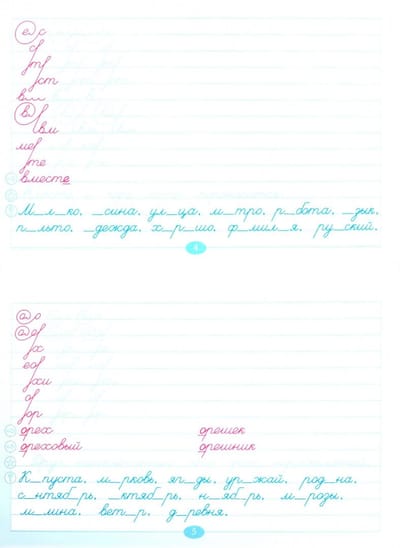 е с
с
т
ст
в
в
вм
ме
те
вместе
М_л_ко, _сина, ул_ца, м_тро, р_бота, _зык,
п_льто, _дежда, х_р_шо, ф_мил_я, ру_ский.
4
а о
а о
х
ео
хи
о
ор
орех орешек
ореховый орешник
К_пуста, м_рковь, яг_ды, ур_жай, род_на,
с_нтяб_рь, _ктяб_рь, н_яб_рь, м_розы,
м_мина, вет_р, д_ревня.
5